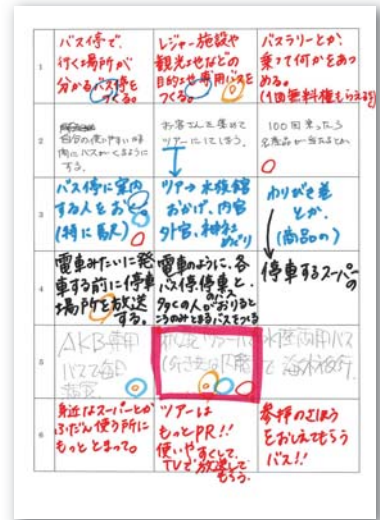 1
バス停で、
行く場所が
分かるバス停を
つくる。
レジャー施設や
観光地などの
目的地専用バスを
つくる。
バスラリーとか、
乗って何かをあつ
める。
(1回無料権もらえる)
2
自分の使いやすい時
間にバスがくるように
する。
お客さんを集めて
ツアーにいてしまう。
100回乗ったら
名産品が当たるとか
3
バス停に案内
する人をおく
(特に老人)
ツアー→水族館
おかげ、内宮
外宮、神社めぐり
わりびき差
とか。
(商品の)
4
電車みたいに発
車する前に停車
場所を放送
する。
電車のように、各
バス停停車と、
多くの人がおりると
ころのみとまるバスをつくる
のバス
停車するスーパーの
5
AKB専用
バスで毎日
水陸両用バス
で
6
身近なスーパーとか
ふだん使う所に
もっととまって。
ツアーは
もっとPR!!
使いやすくして、
TVで放送して
もらう。
参拝のさほう
をおしえてもらう
バス!!